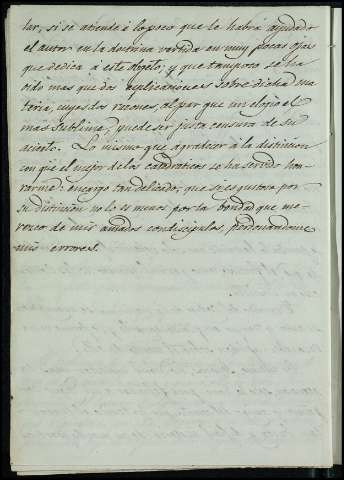 lar, si se atiende á lo poco que le habrá ayudado
el autor en la doctrina vertida en muy pocas ojas
que dedica á este objeto; y que tampoco se ha
oido mas que dos esplicaciones sobre dicha ma
teria, cuyas dos razones, al par que un elogio el
mas sublime, puede ser justa censura de su
acierto. Lo mismo que agradecer á la distincion
con que el mejor de los catedraticos se ha servido hon-
rarme: encargo tan delicado, que si es gustoso por
su distincion no lo es menos por la bondad que me-
rezco de mis amados condiscipulos, perdonandome
mis errores.